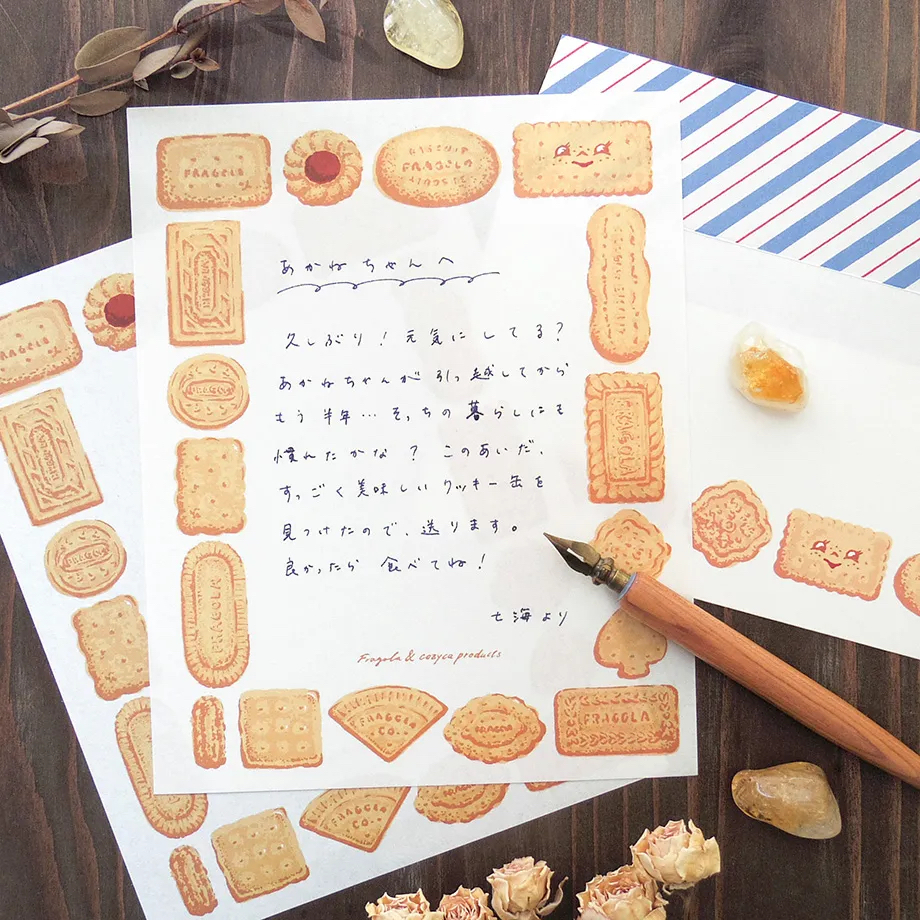 FRAGOLA
BISCUIT
FRAGOLA
BISCUIT
あかねちゃんへ
久しぶり！元気にしてる？
あかねちゃんが引っ越してから
もう半年…そっちの暮らしにも
慣れたかな？このあいだ、
すっごく美味しいクッキー缶を
見つけたので、送ります。
良かったら食べてね！
七海より
Fragola & cozyca products
FRAGOLA
FRAGOLA
FRAGOLA
FRAGOLA
CO.
FRAGOLA
FRAGOLA
FRAGOLA
FRAGOLA
CO.